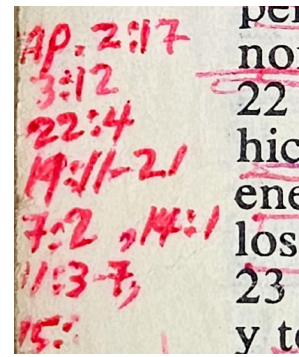 Ap. 2:17
3:12
22:4
19:11-21
7:2, 14:1
11:3-7,
15:
no
22
hic
ene
los
23
y t